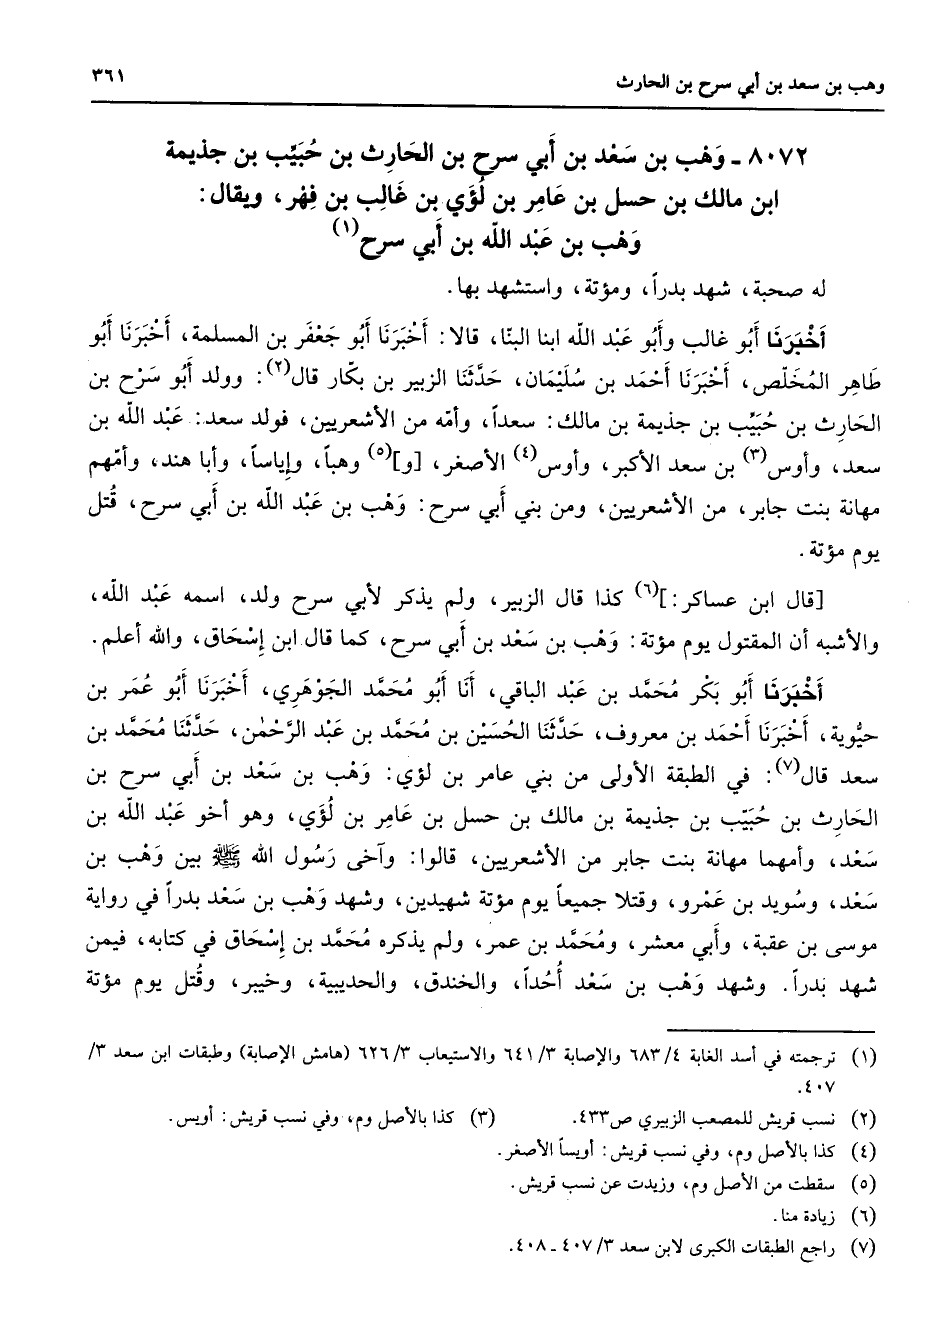 وهب بن سعد بن أبي سرح بن الحارث ٣٦١
٨٠٧٢ ـ وَهْب بن سَعْد بن أَبي سرح بن الحَارِث بن حُبَيِّب بن جذيمة
ابن مالك بن حسل بن عَامِر بن لُؤَي بن غَالِب بن فِهْر، ويقال:
وَهْب بن عَبْد اللّه بن أَبي سرح(١)
له صحبة، شهد بدراً، ومؤتة، واستشهد بها.
أَخْبَرَنَا أَبُو غالب وأَبُو عَبْد اللّه ابنا البنّا، قالا: أَخْبَرَنَا أَبُو جَعْفَر بن المسلمة، أَخْبَرَنَا أَبُو
طَاهِر المُخَلّص، أَخْبَرَنَا أَحْمَد بن سُلَيْمَان، حَدَّثَنَا الزبير بن بكّار قال(٢): وولد أَبُو سَرْح بن
الحَارِث بن حُبَيِّب بن جذيمة بن مالك: سعداً، وأمّه من الأشعريين، فولد سعد: عَبْد اللّه بن
سعد، وأوس(٣) بن سعد الأكبر، وأوس(٤) الأصغر، [و](٥) وهباً، وإياساً، وأبا هند، وأمّهم
مهانة بنت جابر، من الأشعريين، ومن بني أَبي سرح: وَهْب بن عَبْد اللّه بن أَبي سرح، قُتل
يوم مؤتة.
[قال ابن عساكر:](٦) كذا قال الزبير، ولم يذكر لأبي سرح ولد، اسمه عَبْد اللّه،
والأشبه أن المقتول يوم مؤتة: وَهْب بن سَعْد بن أَبي سرح، كما قال ابن إِسْحَاق، والله أعلم.
أَخْبَرَنَا أَبُو بَكْر مُحَمَّد بن عَبْد الباقي، أَنَا أَبُو مُحَمَّد الجَوْهَري، أَخْبَرَنَا أَبُو عُمَر بن
حيّوية، أَخْبَرَنَا أَحْمَد بن معروف، حَدَّثَنَا الحُسَيْن بن مُحَمَّد بن عَبْد الرَّحْمٰن، حَدَّثَنَا مُحَمَّد بن
سعد قال(٧): في الطبقة الأولى من بني عامر بن لؤي: وَهْب بن سَعْد بن أَبي سرح بن
الحَارِث بن حُبَيِّب بن جذيمة بن مالك بن حسل بن عَامِر بن لُؤَي، وهو أخو عَبْد اللّه بن
سَعْد، وأمهما مهانة بنت جابر من الأشعريين، قالوا: وآخى رَسُول الله ﷺ بين وَهْب بن
سَعْد، وسُويد بن عَمْرو، وقتلا جميعاً يوم مؤتة شهيدين، وشهد وَهْب بن سَعْد بدراً في رواية
موسى بن عقبة، وأَبي معشر، ومُحَمَّد بن عمر، ولم يذكره مُحَمَّد بن إِسْحَاق في كتابه، فيمن
شهد بَدراً. وشهد وَهْب بن سَعْد أُحُداً، والخندق، والحديبية، وخيبر، وقُتل يوم مؤتة
(١) ترجمته في أسد الغابة ٤/ ٦٨٣ والإصابة ٣/ ٦٤١ والاستيعاب ٣/ ٦٢٦ (هامش الإصابة) وطبقات ابن سعد ٣/
٤٠٧.
(٢) نسب قريش للمصعب الزبيري ص٤٣٣. (٣) كذا بالأصل وم، وفي نسب قريش: أويس.
(٤) كذا بالأصل وم، وفي نسب قريش: أويساً الأصغر.
(٥) سقطت من الأصل وم، وزيدت عن نسب قريش.
(٦) زيادة منا.
(٧) راجع الطبقات الكبرى لابن سعد ٣/ ٤٠٧ ـ ٤٠٨.